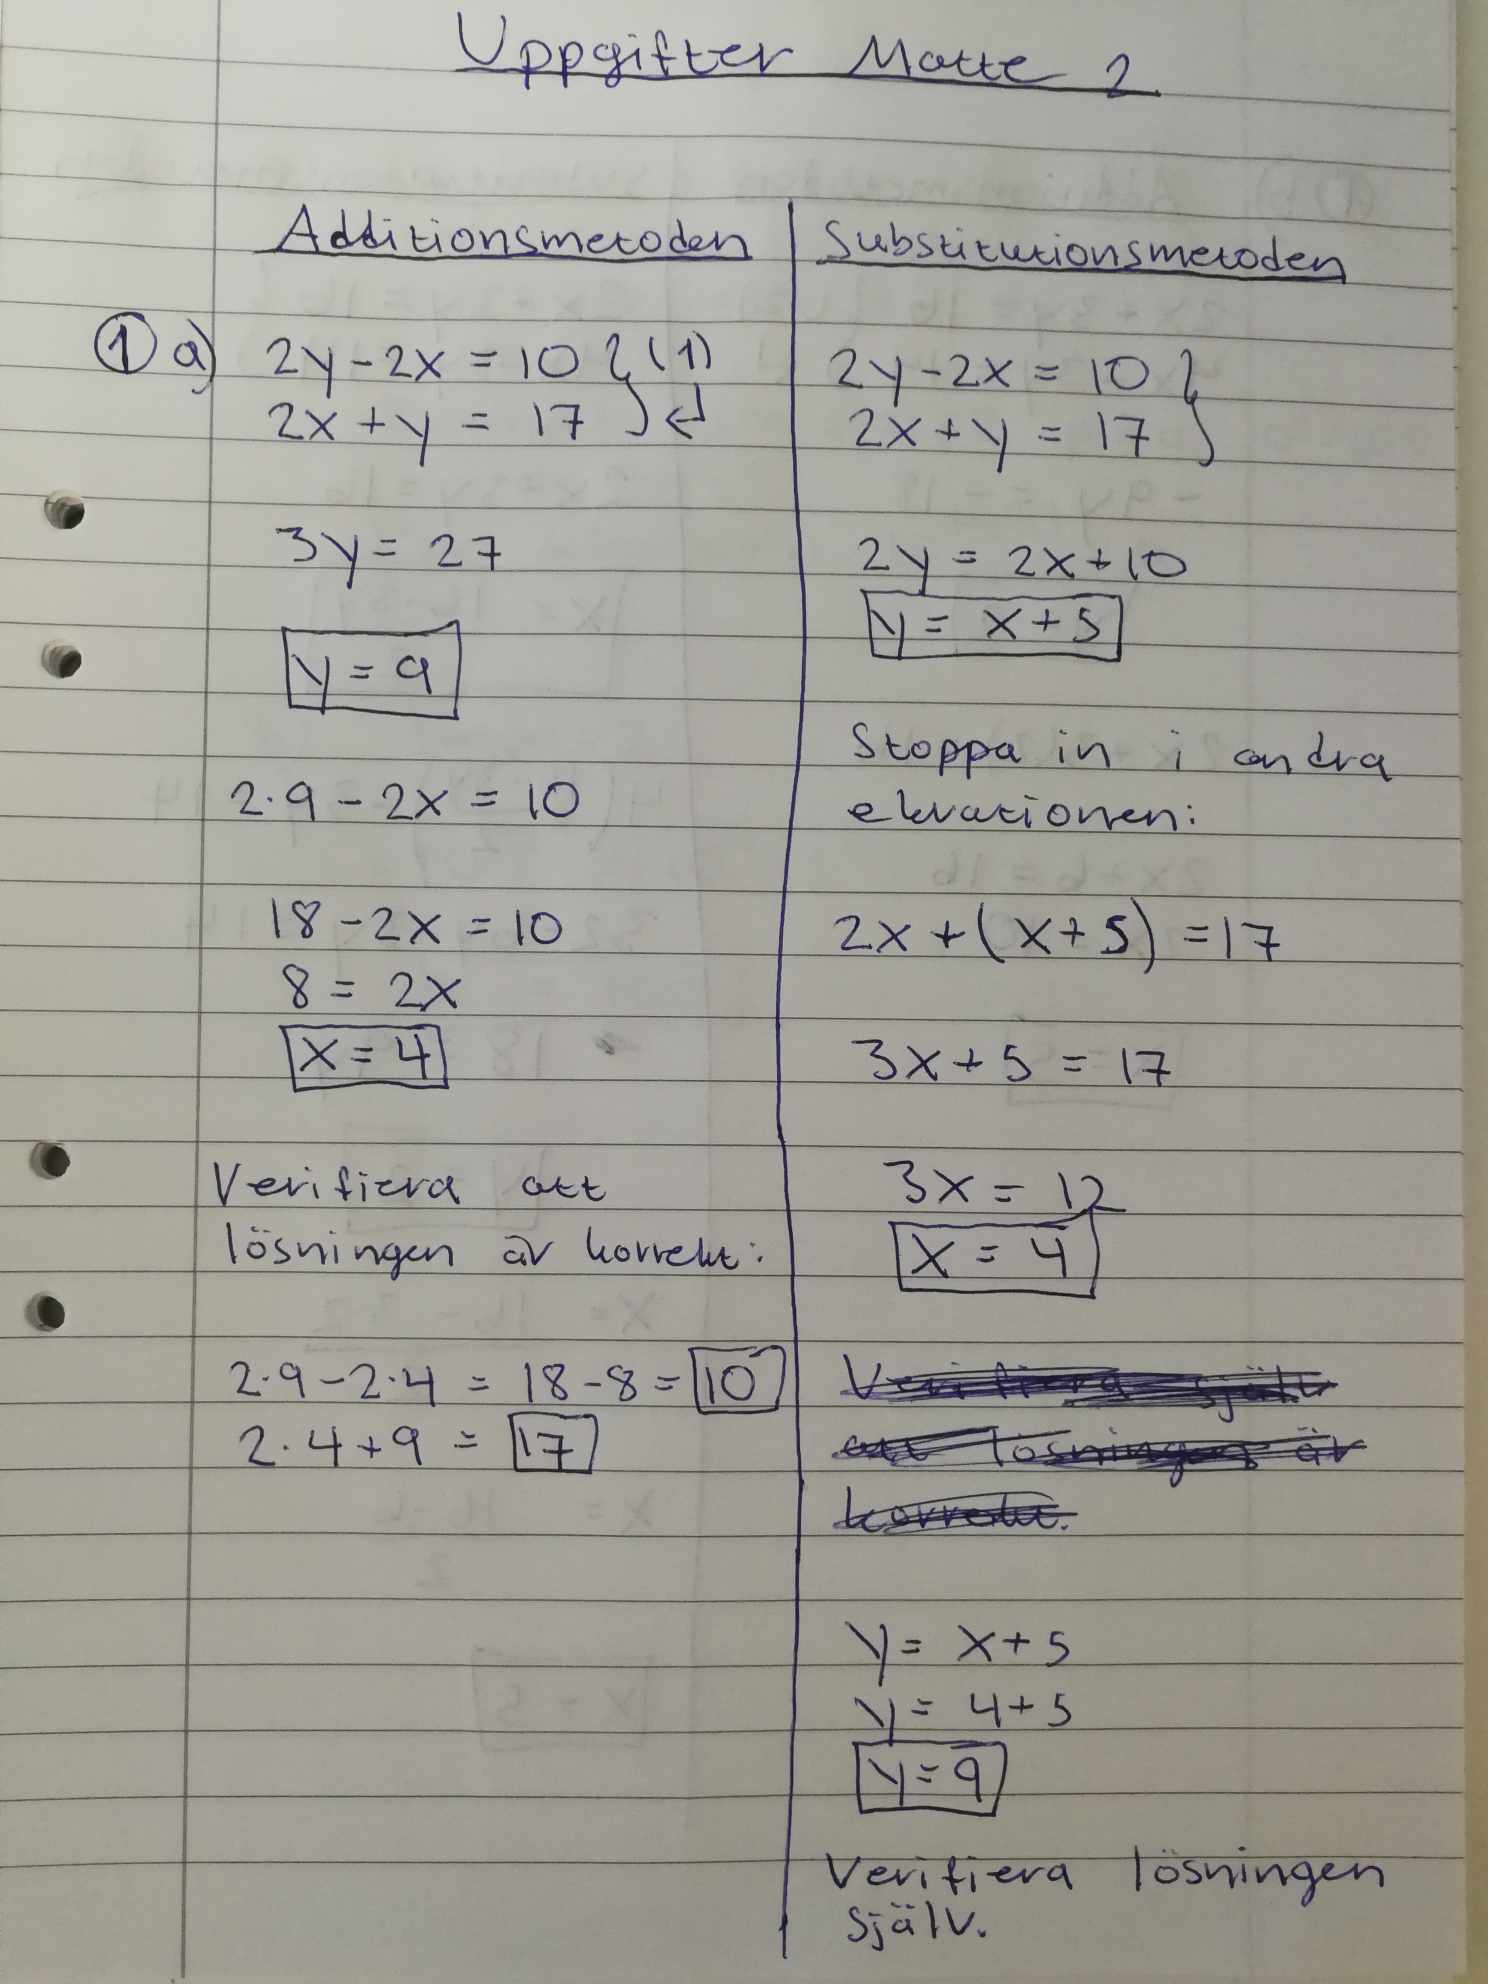 Uppgifter Matte 2
Additionsmetoden
① a) 2y-2x = 10 } (1)
2x+y = 17
3y = 27
y = 9
2·9-2x = 10
18-2x = 10
8 = 2x
x = 4
Verifiera att
lösningen är korrekt:
2·9-2·4 = 18-8 = 10
2·4+9 = 17
Substitutionsmetoden
2y-2x = 10 }
2x+y = 17
2y = 2x+10
y = x+5
Stoppa in i andra
ekvationen:
2x+(x+5) = 17
3x+5 = 17
3x = 12
x = 4
Verifiera själv
att lösningen är
korrekt.
y = x+5
y = 4+5
y = 9
Verifiera lösningen
själv.